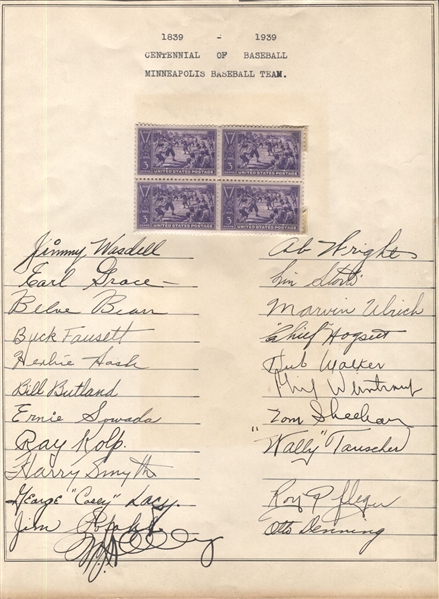 1839 - 1939
CENTENNIAL OF BASEBALL
MINNEAPOLIS BASEBALL TEAM.
3 UNITED STATES POSTAGE
3 UNITED STATES POSTAGE
3 UNITED STATES POSTAGE
3 UNITED STATES POSTAGE
Jimmy Wasdell
Earl Grace
Belve Bean
Buck Fausett
Herbie Hash
Bill Butland
Ernie Sowada
Ray Kolp.
Harry Smyth
George "Casey" Lacy.
Jim
Ab Wright
Lin Storti
Marvin Ulrich
"Chief" Hogsett
Hub Walker
Phil Weintraub
Tom Sheehan
"Wally" Tauscher
Roy Pfleger
Otto Denning